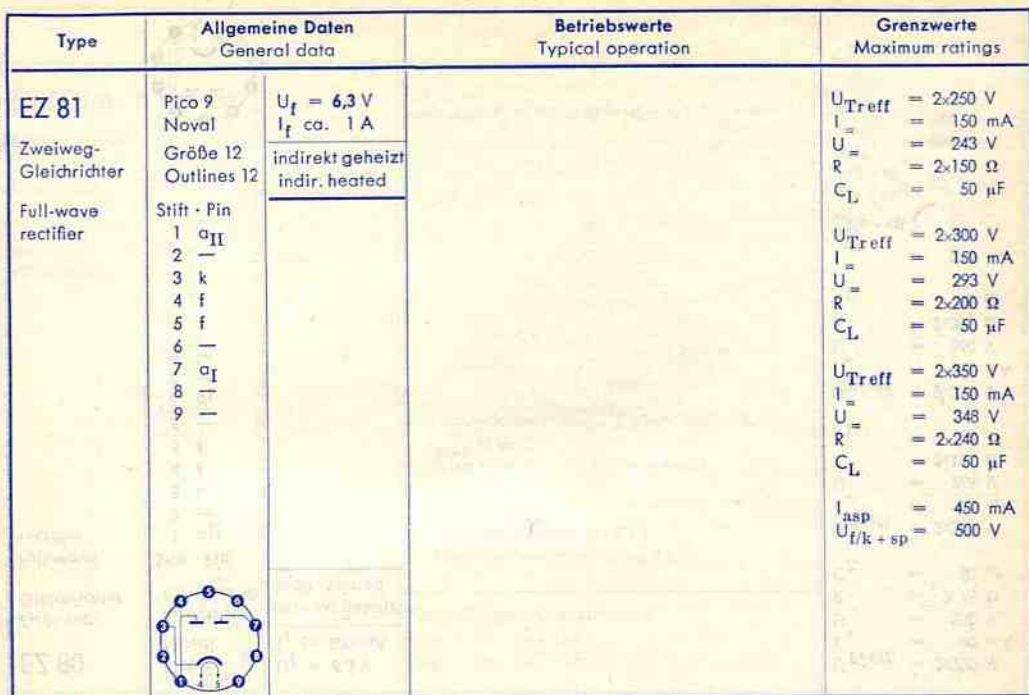 Type
Allgemeine Daten
General data
Betriebswerte
Typical operation
Grenzwerte
Maximum ratings
EZ 81
Zweiweg-
Gleichrichter
Full-wave
rectifier
Pico 9
Noval
Größe 12
Outlines 12
Stift · Pin
1 aII
2 —
3 k
4 f
5 f
6 —
7 aI
8 —
9 —
Uf = 6,3 V
If ca. 1 A
indirekt geheizt
indir. heated
UTr eff = 2×250 V
I= = 150 mA
U= = 243 V
R = 2×150 Ω
CL = 50 µF
UTr eff = 2×300 V
I= = 150 mA
U= = 293 V
R = 2×200 Ω
CL = 50 µF
UTr eff = 2×350 V
I= = 150 mA
U= = 348 V
R = 2×240 Ω
CL = 50 µF
Iasp = 450 mA
Uf/k + sp = 500 V
1 2 3 4 5 6 7 8 9
4 5